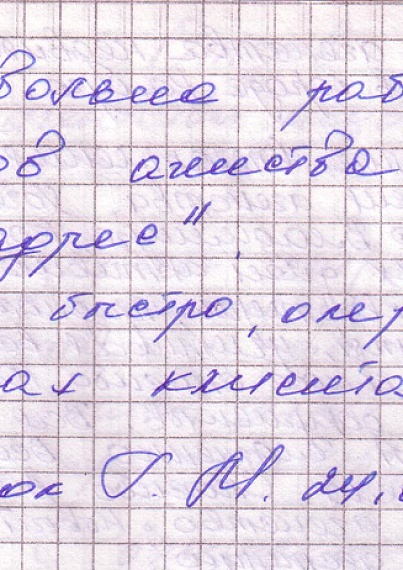 вольна раб
ов агенства
адрес",
быстро, опер
ах клиента
ок Г. М. 24.